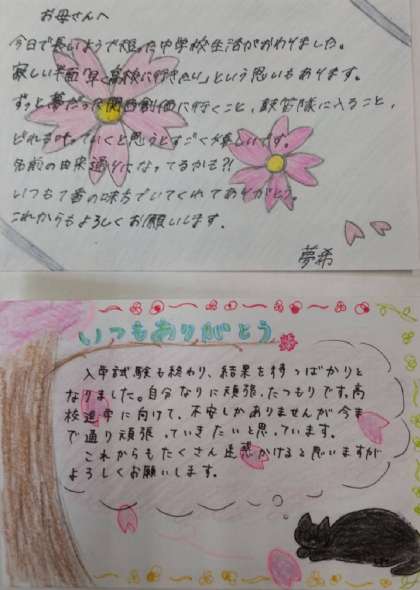 お母さんへ
今日で長いようで短った中学校生活がおわりました。
寂しい半面「早く高校に行きたい」という思いもあります。
ずっと夢だった関西創価に行くこと、鼓笛隊に入ること、
どれも叶っていくと思うとすごく嬉しいです。
名前の由来通りになってるかも?!
いつも1番の味方でいてくれてありがとう。
これからもよろしくお願いします。
夢希
いつもありがとう
入学試験も終わり、結果を待つばかりと
なりました。自分なりに頑張ったつもりです。高
校進学に向けて、不安しかありませんが今ま
で通り頑張っていきたいと思っています。
これからもたくさん迷惑かけると思いますが
よろしくお願いします。